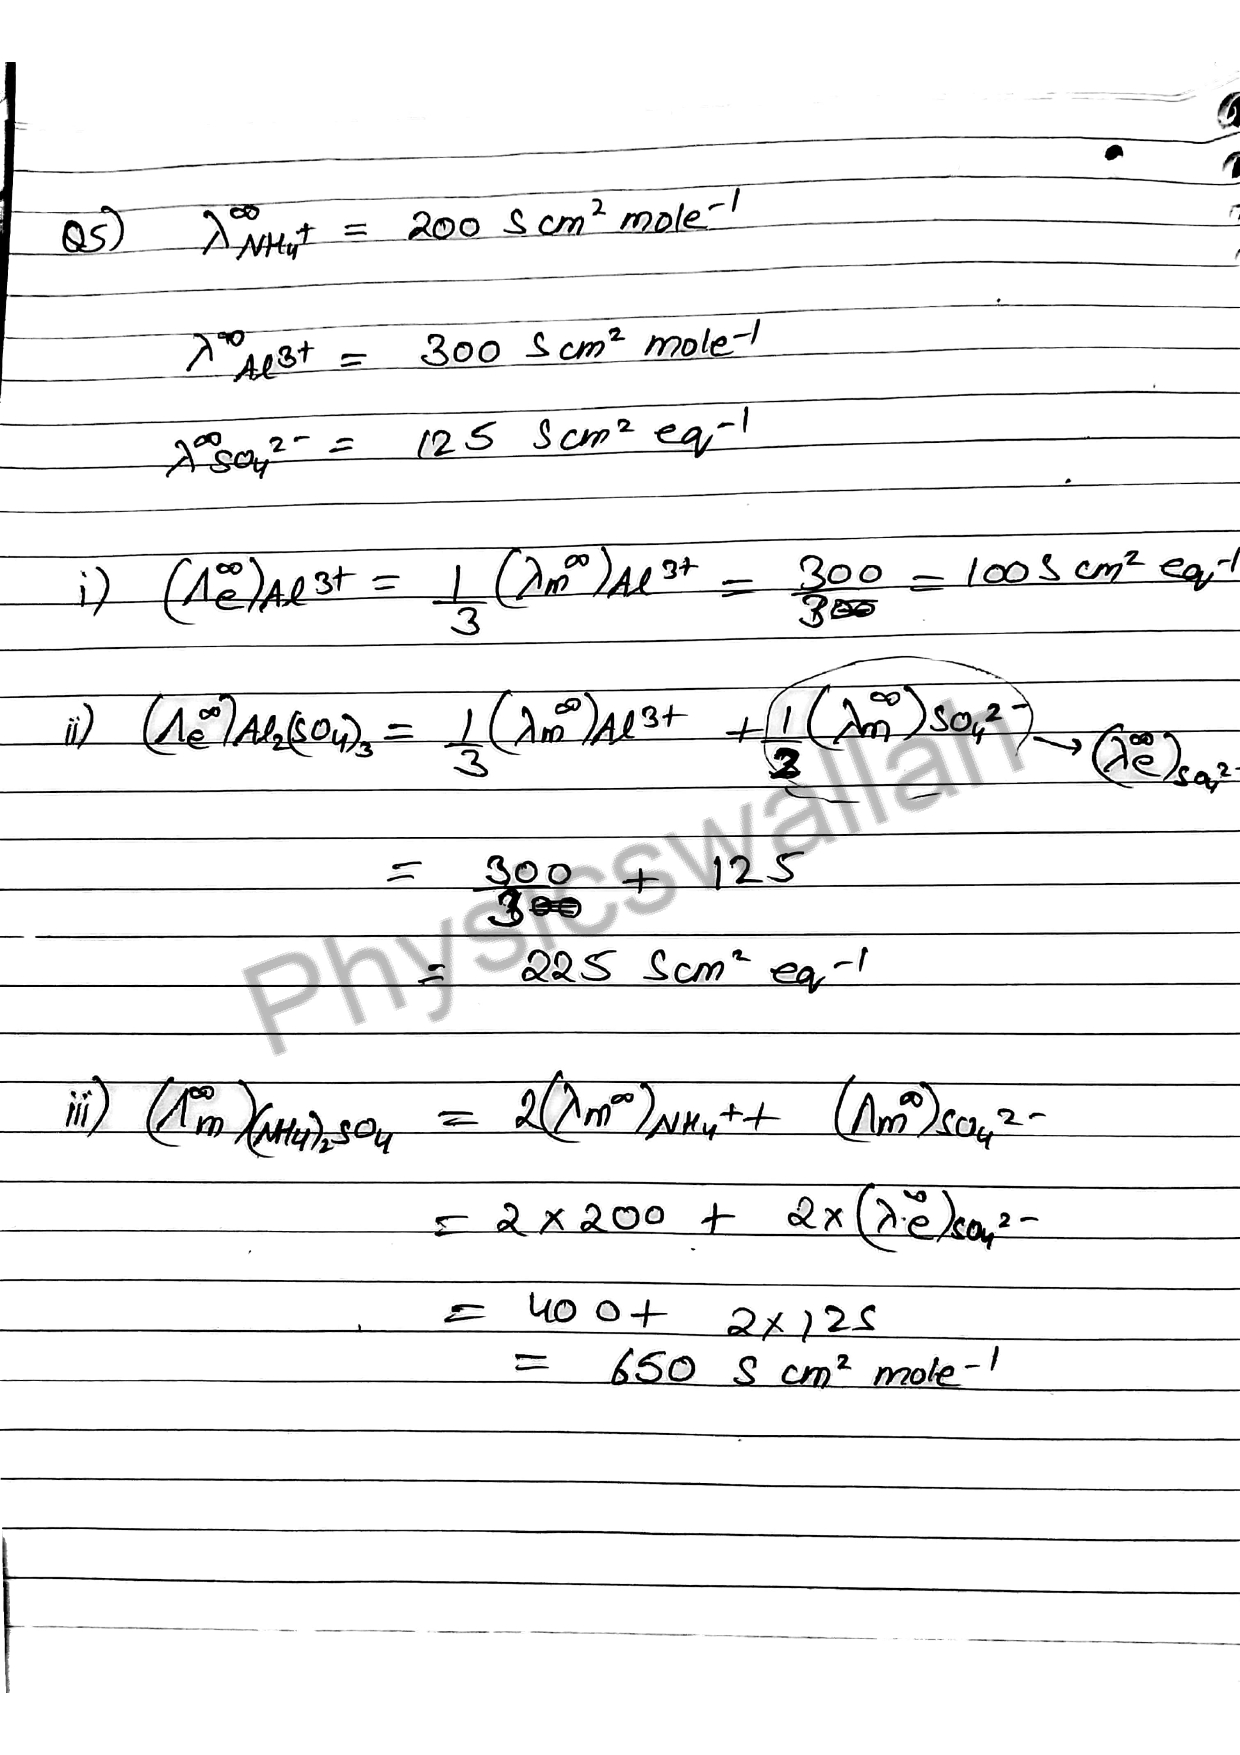 Q5) λ∞NH4+ = 200 S cm² mole⁻¹
λ∞Al3+ = 300 S cm² mole⁻¹
λ∞SO4²⁻ = 125 S cm² eq⁻¹
i) (Λe∞)Al3+ = 1/3 (λm∞)Al3+ = 300/3 = 100 S cm² eq⁻¹
ii) (Λe∞)Al2(SO4)3 = 1/3 (λm∞)Al3+ + 1/2 (λm∞)SO4²⁻ → (λe∞)SO4²⁻
= 300/3 + 125
= 225 S cm² eq⁻¹
Physicswallah
iii) (Λm∞)(NH4)2SO4 = 2(λm∞)NH4+ + (Λm∞)SO4²⁻
= 2 × 200 + 2 × (λe∞)SO4²⁻
= 400 + 2 × 125
= 650 S cm² mole⁻¹